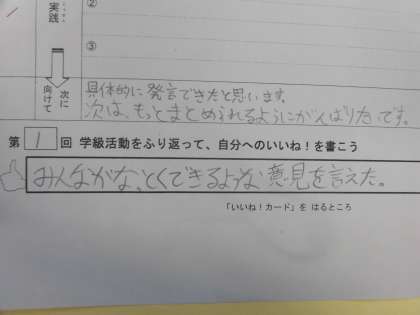 実践
②
③
次に
向けて
具体的に発言できたと思います。
次は、もっとまとめられるようにがんばりたいです。
第1回 学級活動をふり返って、自分へのいいね！を書こう
みんながなっとくできるような意見を言えた。
「いいね！カード」を はるところ